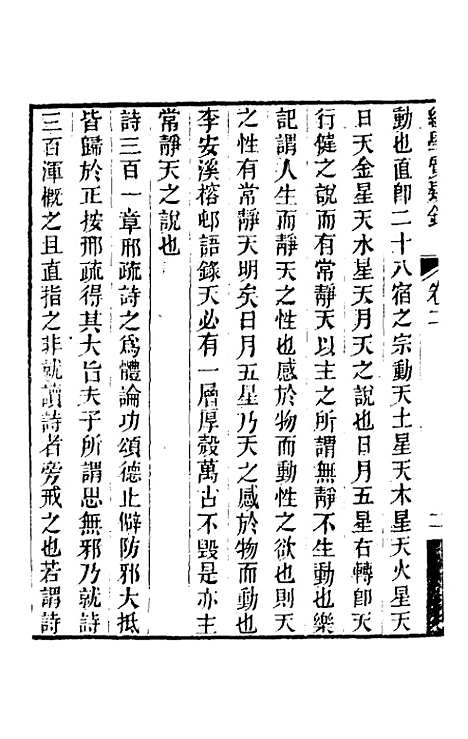 卷二
動也直卽二十八宿之宗動天土星天木星天火星天
日天金星天水星天月天之說也日月五星右轉卽天
行健之說而有常靜天以主之所謂無靜不生動也樂
記謂人生而靜天之性也感於物而動性之欲也則天
之性有常靜天明矣日月五星乃天之感於物而動也
李安溪榕邨語錄天必有一層厚殼萬古不毀是亦主
常靜天之說也
詩三百一章邢疏詩之爲體論功頌德止僻防邪大抵
皆歸於正按邢疏得其大旨夫子所謂思無邪乃就詩
三百渾概之且直指之非就讀詩者旁戒之也若謂詩